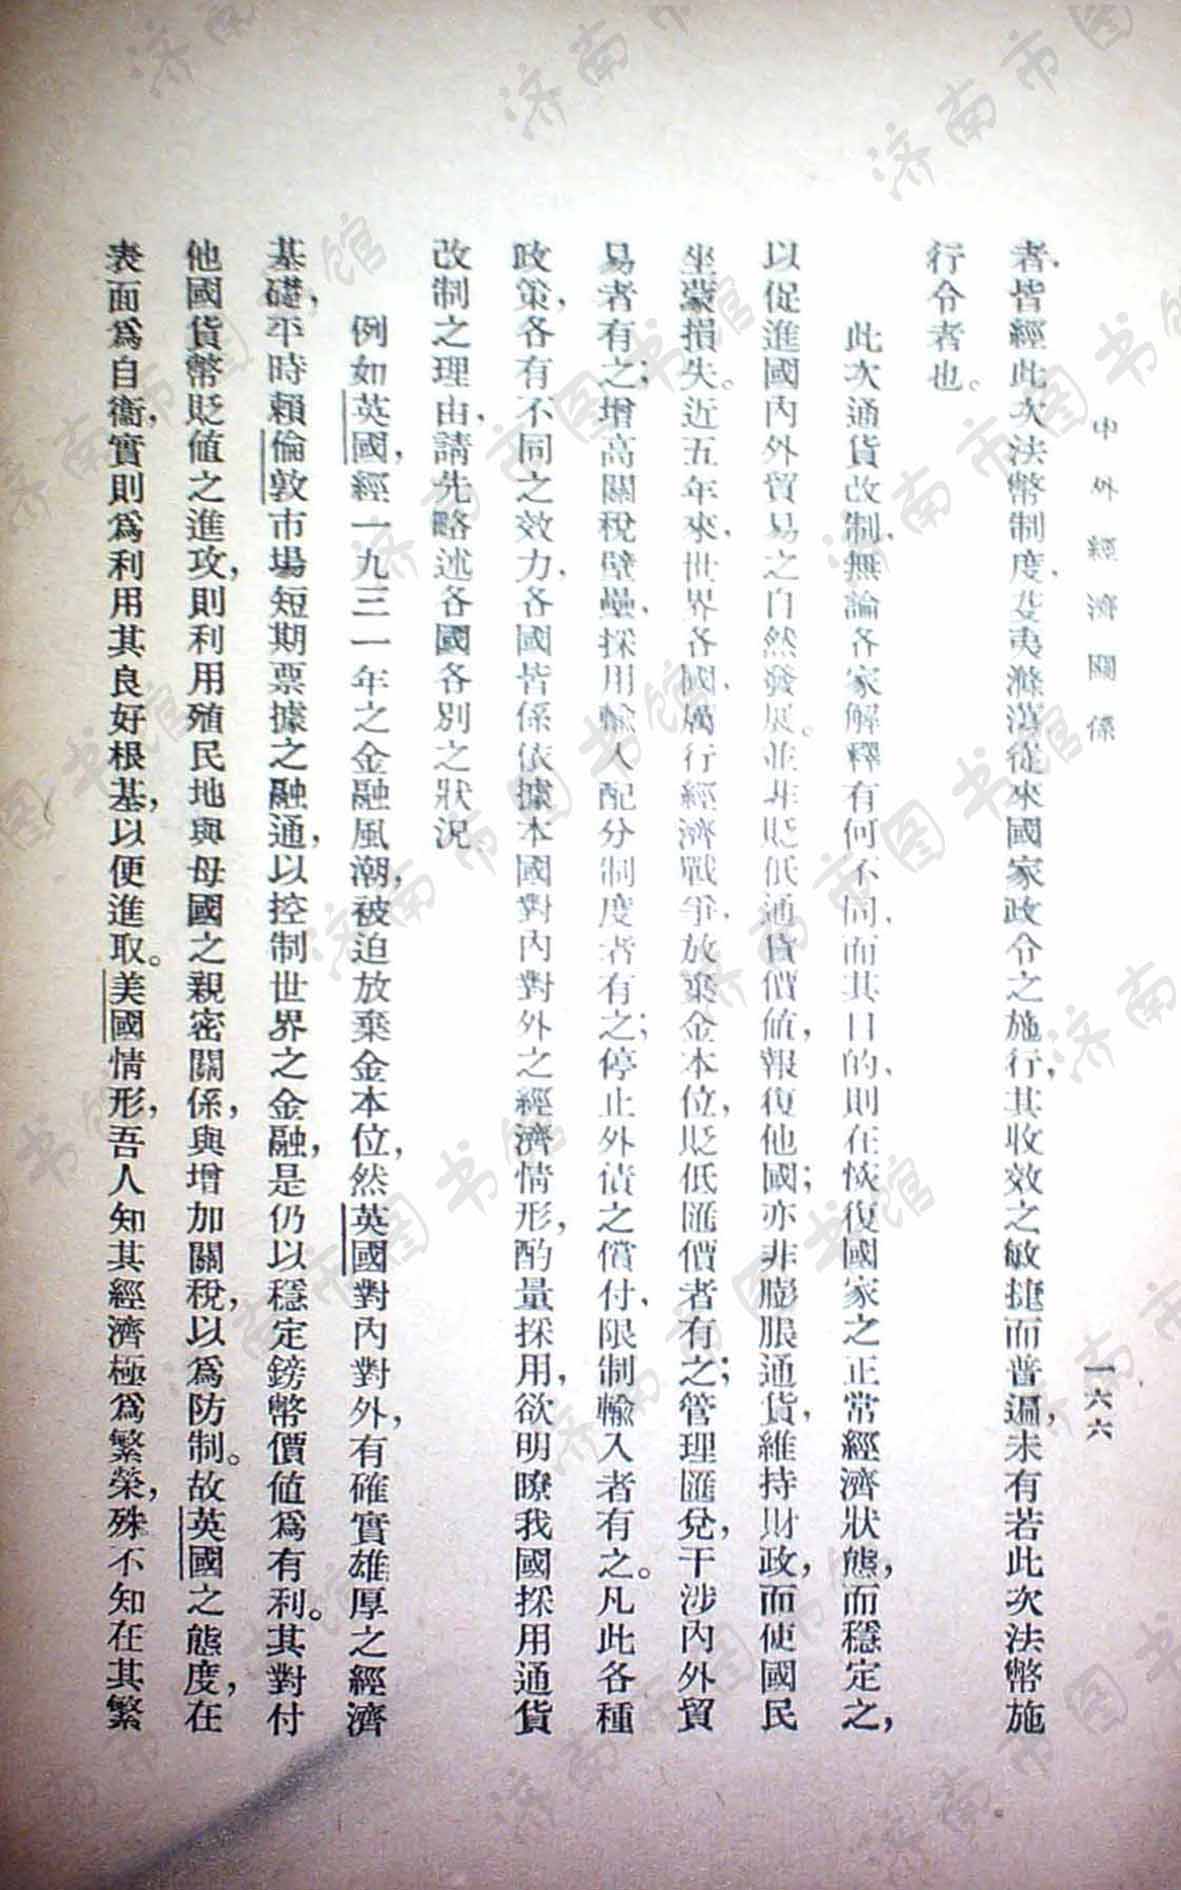 中外經濟關係
一六六
者,皆經此次法幣制度,芟夷滌蕩,從來國家政令之施行,其收效之敏捷而普遍,未有若此次法幣施
行令者也。
此次通貨改制,無論各家解釋有何不同,而其目的,則在恢復國家之正常經濟狀態,而穩定之,
以促進國內外貿易之自然發展。並非貶低通貨價值,報復他國;亦非膨脹通貨,維持財政,而使國民
坐蒙損失。近五年來,世界各國,厲行經濟戰爭,放棄金本位,貶低匯價者有之;管理匯兌,干涉內外貿
易者有之;增高關稅壁壘,採用輸入配分制度者有之;停止外債之償付,限制輸入者有之。凡此各種
政策,各有不同之效力,各國皆係依據本國對內對外之經濟情形,酌量採用,欲明瞭我國採用通貨
改制之理由,請先略述各國各別之狀況
例如英國,經一九三一年之金融風潮,被迫放棄金本位,然英國對內對外,有確實雄厚之經濟
基礎,平時賴倫敦市場短期票據之融通,以控制世界之金融,是仍以穩定鎊幣價值爲有利。其對付
他國貨幣貶值之進攻,則利用殖民地與母國之親密關係,與增加關稅,以爲防制。故英國之態度,在
表面爲自衞,實則爲利用其良好根基,以便進取。美國情形,吾人知其經濟極爲繁榮,殊不知在其繁
济南市图书馆